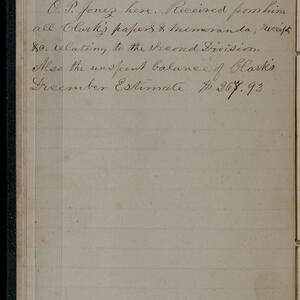 O. P. Jonez here. Received from him
all Clark's papers & memoranda, receipts
&c. relating to the Second Division.
Also the unspent balance of Clark's
December Estimate $267.93